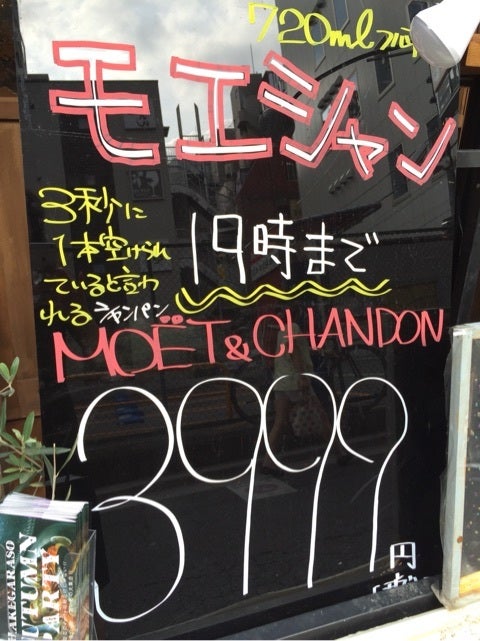 720ml
モエシャン
3秒に
1本空けられ
ていると言わ
れるシャンパン
19時まで
MOËT & CHANDON
3999
円
HAKEGARASO
AUTUMN
PARTY